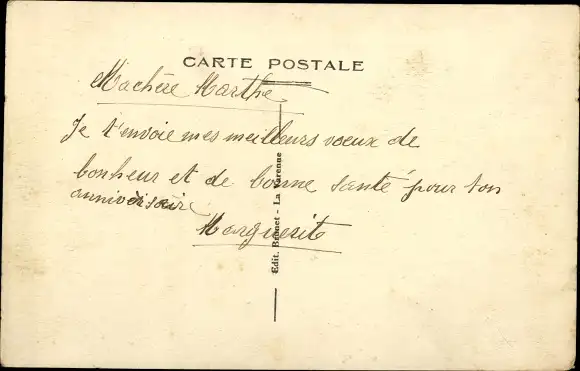 CARTE POSTALE
Machère Marthe
Je t'envoie mes meilleurs voeux de
bonheur et de bonne santé pour ton
anniversaire
Marguerite
Edit. Brunet - La Varenne